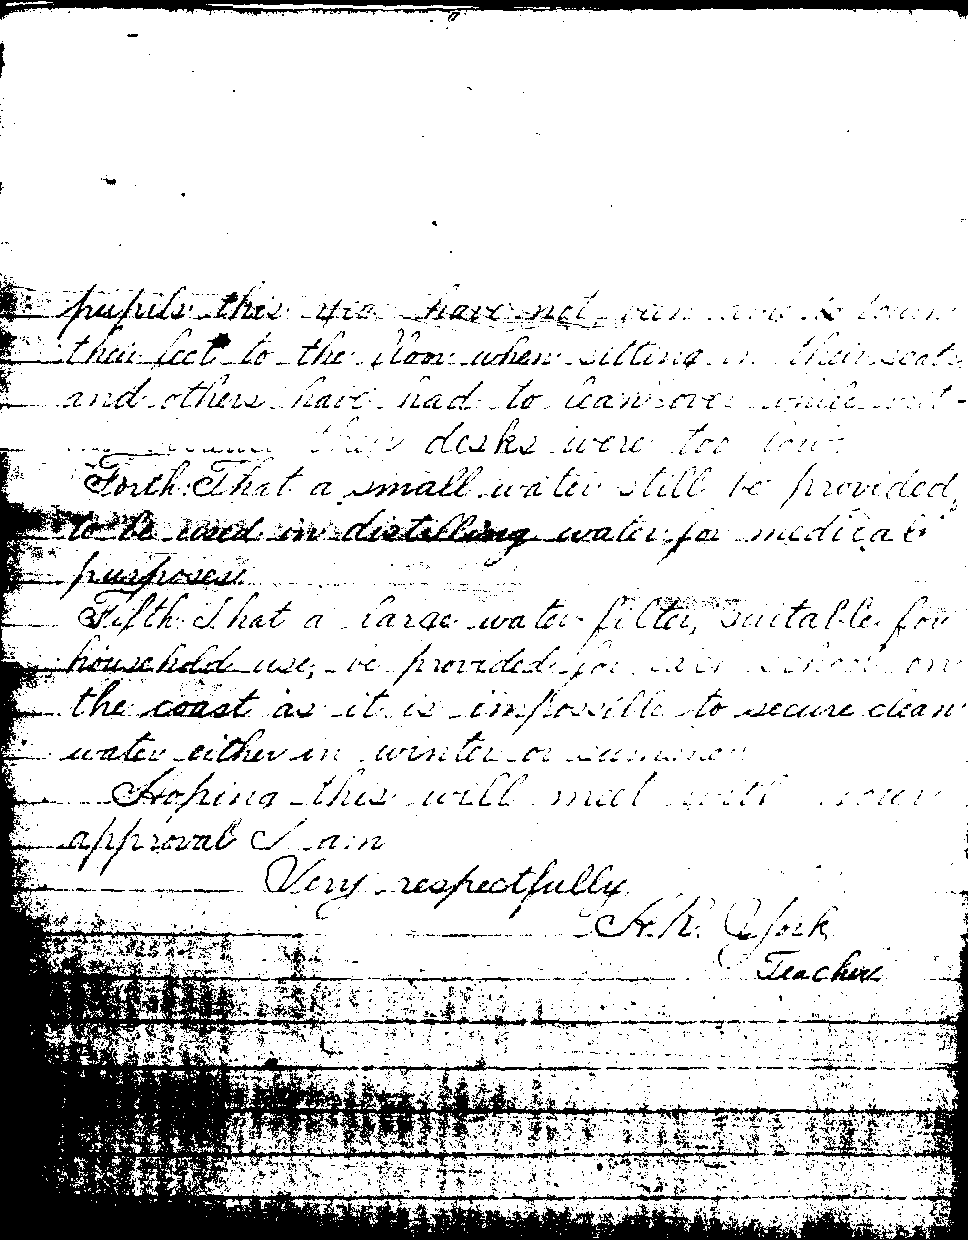 pupils this year have not been able to touch
their feet to the floor when sitting in their seats
and others have had to lean over while writ-
their desks were too low.
Forth: That a small water still be provided,
to be used in distilling water for medical
purposes.
Fifth: That a large water filter, suitable for
household use, be provided for each school on
the coast as it is impossible to secure clean
water either in winter or summer.
Hoping this will meet with your
approval I am
Very respectfully
H.R. York
Teacher